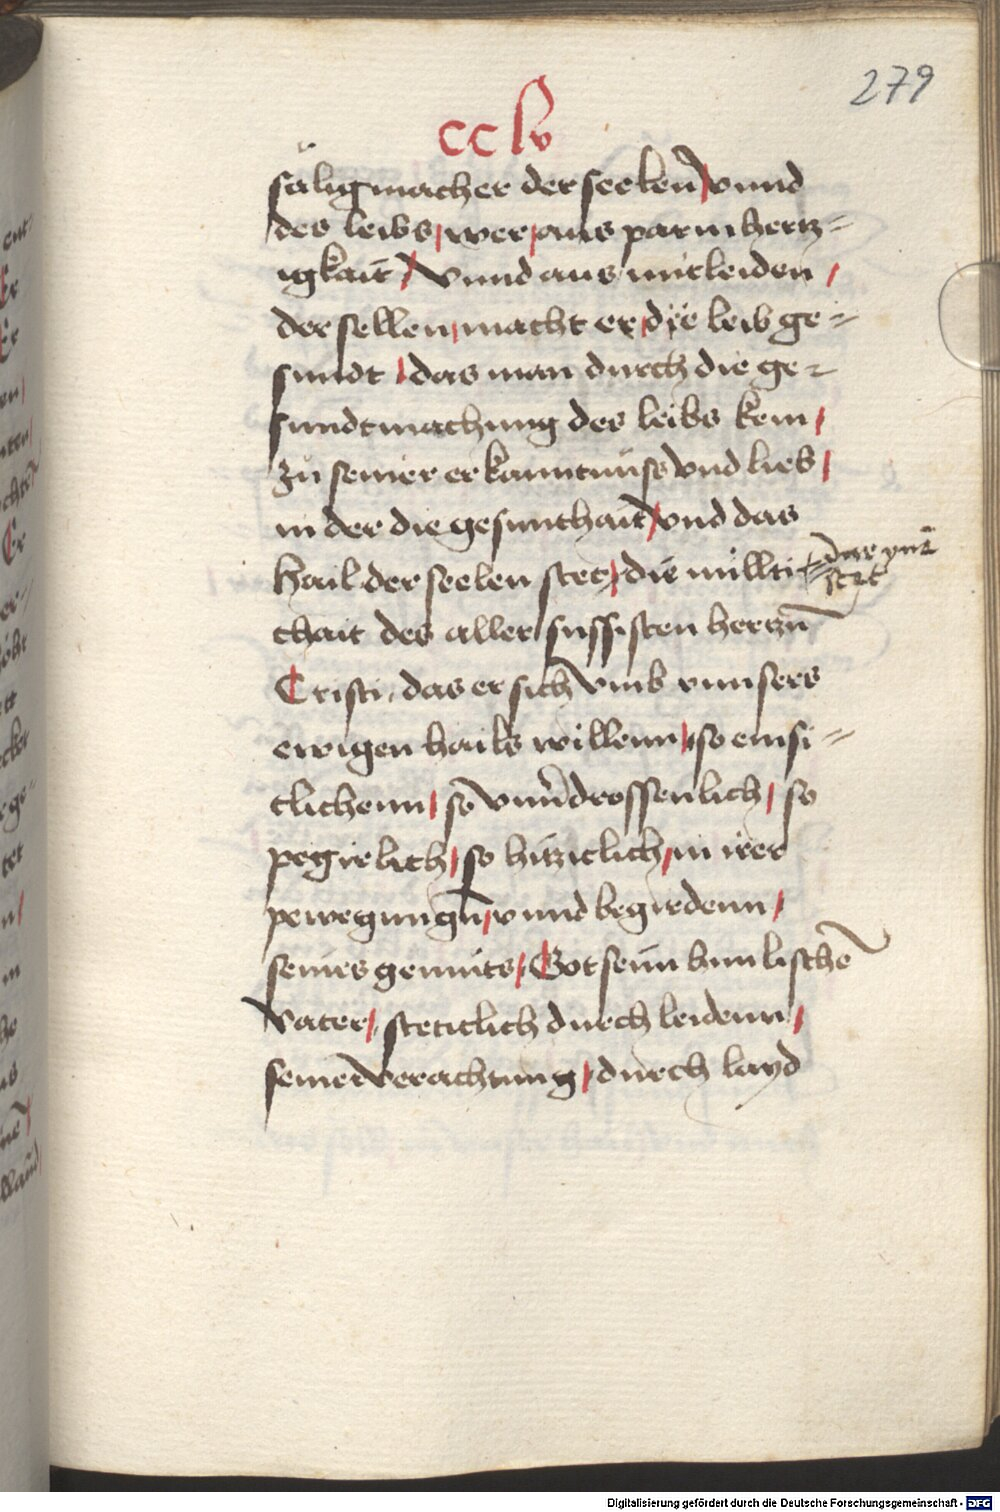 279
cclv
säligmacher der seelen / vnnd
des leibs / wer / aus parmhertz=
igkait / Vnnd aus mitleiden /
der sellen / macht er / die leib ge=
sundt / das man durch die ge=
sundtmachung des leibs kem /
zu seiner erkanntnuss vnd lieb /
in der die gesunthait / vnd das
hail der seelen stet / die millti
dar ynn
stet
chait des aller sussisten hertzn
Cristi, das er sich vmb vnnsers
ewigen hails willenn / so emsi=
clichenn / so vnuerdrossenlich / so
pegirlich / so hitziclich / in irer
pewegungn / vnnd begirdenn /
seines gemüts / Got sein himlischen
Vater / steticlich durch leidenn /
seiner verachtung / durch layd
Digitalisierung gefördert durch die Deutsche Forschungsgemeinschaft - DFG